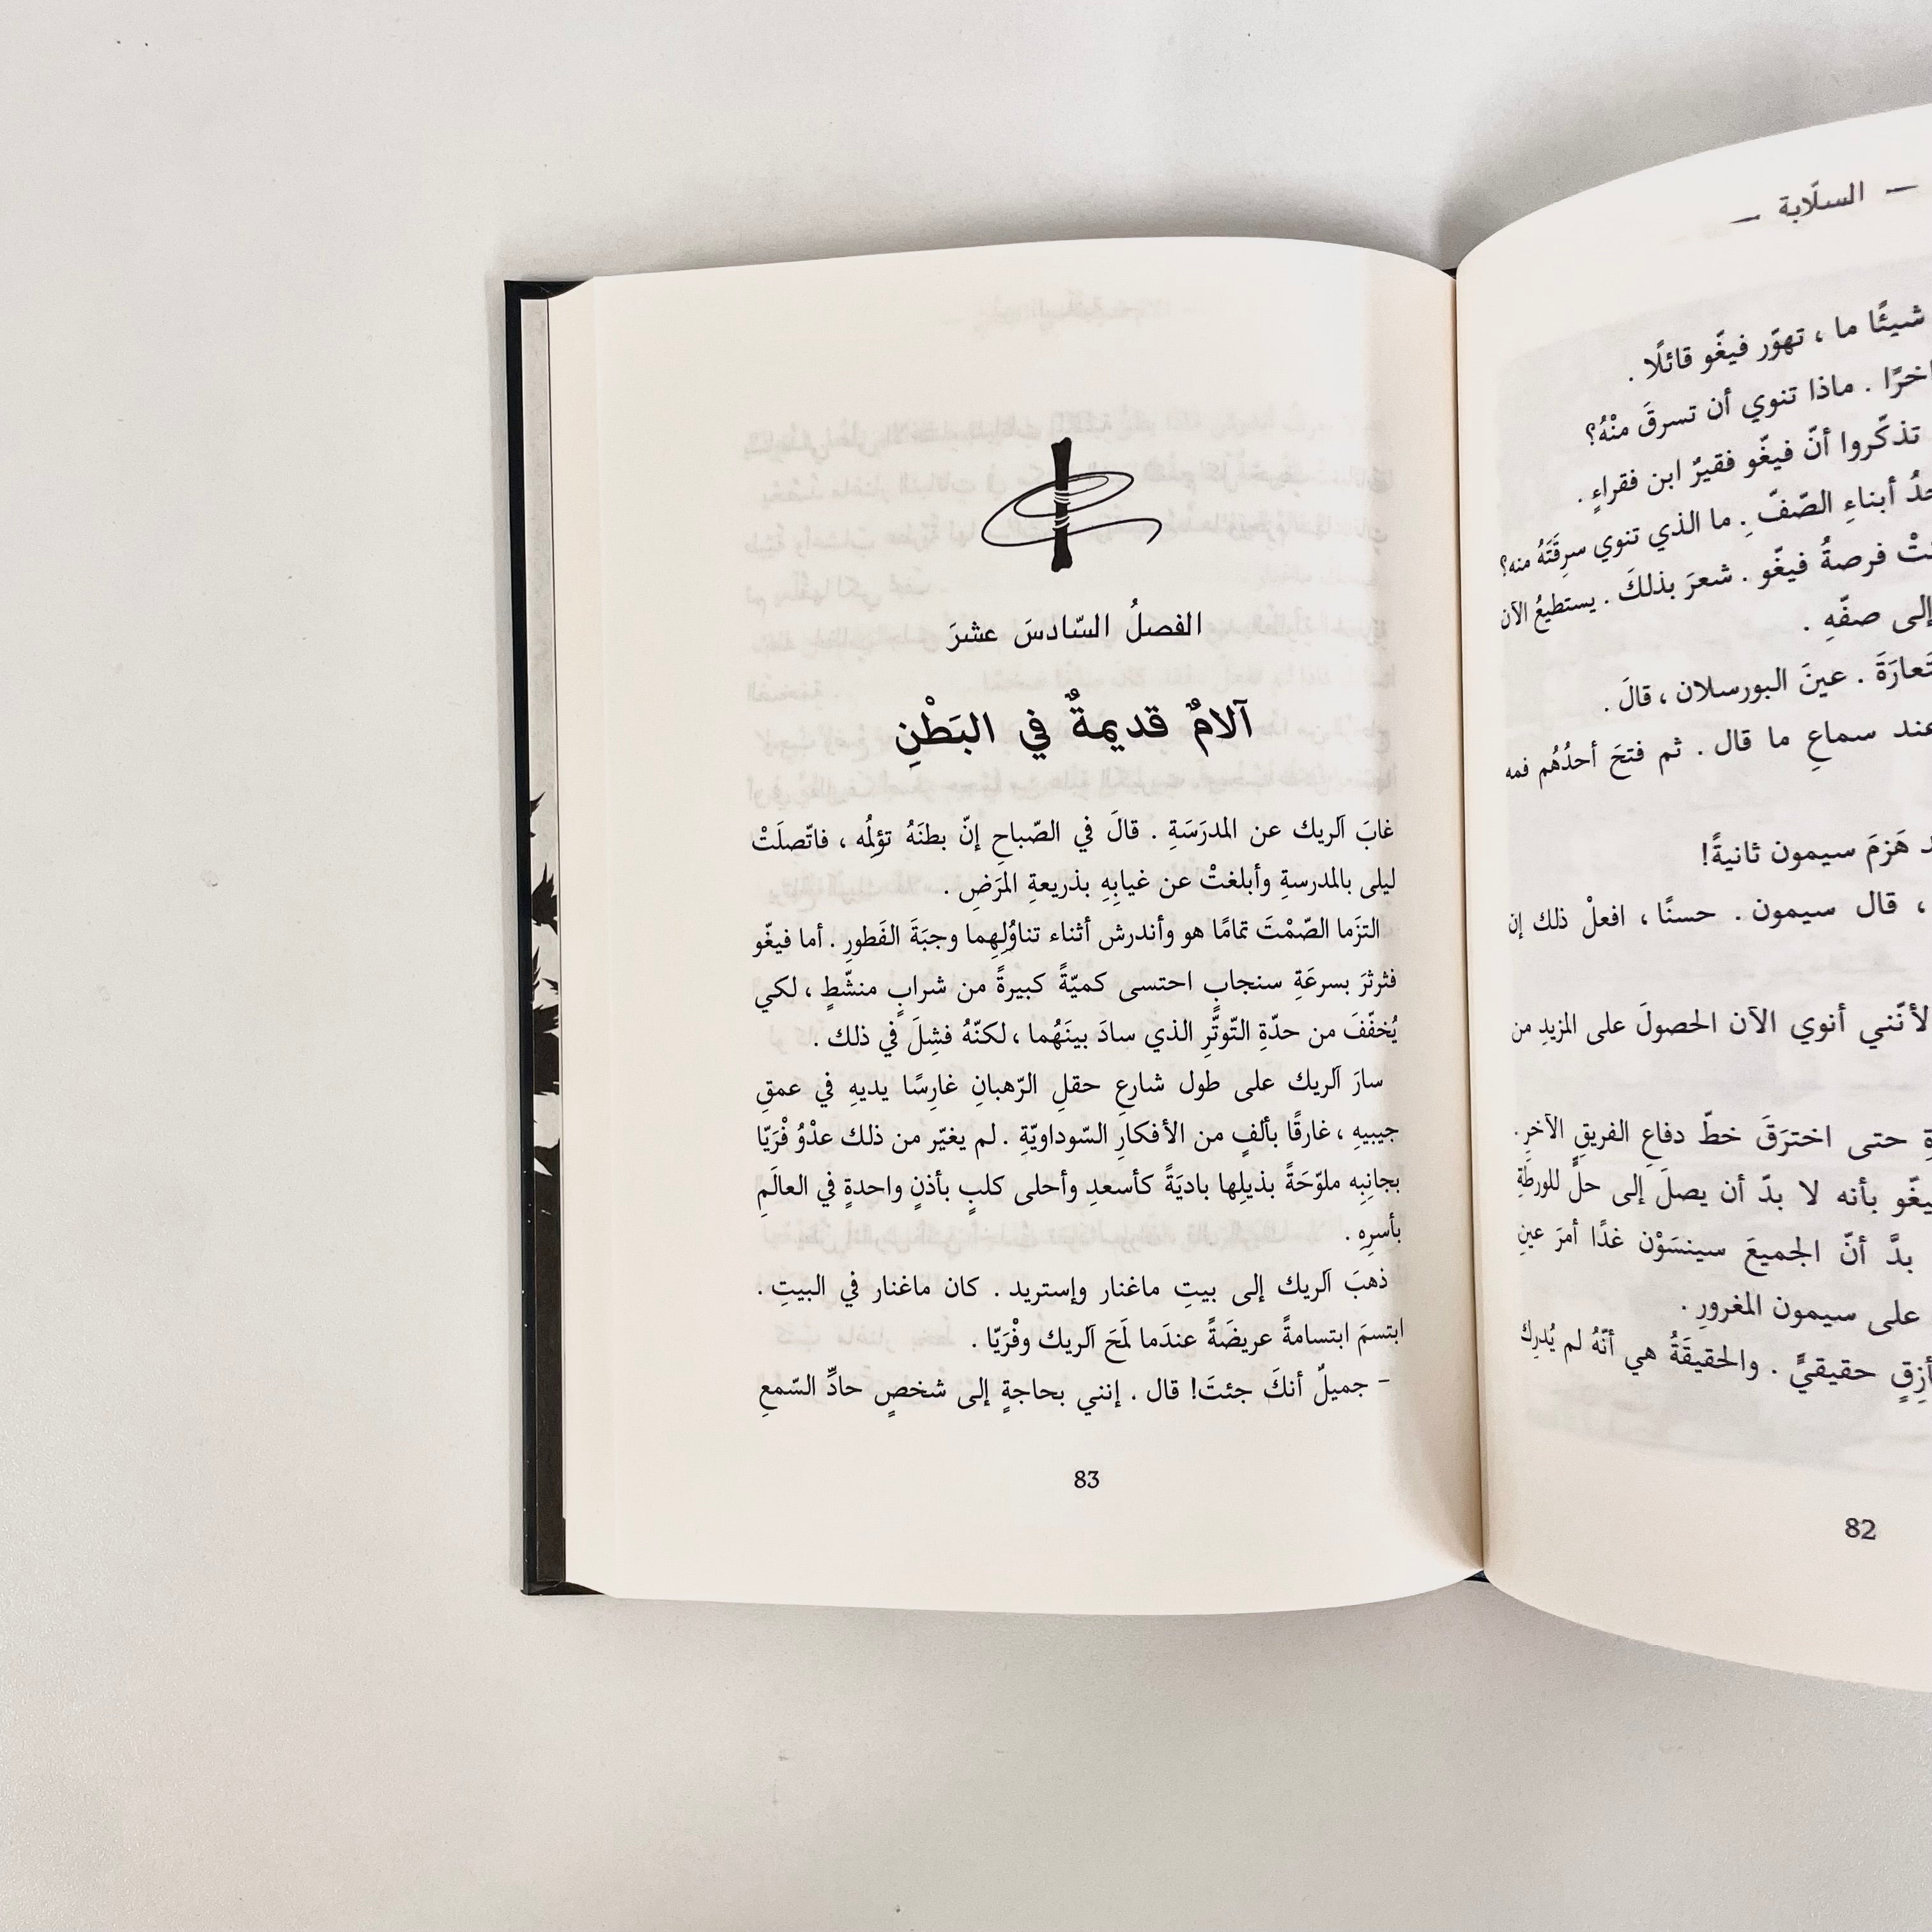 — السلّابة —
شيئًا ما ، تهوّر فيغّو قائلًا .
ماذا تنوي أن تسرقَ منْهُ؟
تذكّروا أنّ فيغّو فقيرٌ ابن فقراءٍ .
أبناءِ الصّفّ . ما الذي تنوي سرِقَتَهُ منه؟
فرصةُ فيغّو . شعرَ بذلكَ . يستطيعُ الآن
إلى صفّهِ .
عينَ البورسلان ، قالَ .
عند سماعِ ما قال . ثم فتحَ أحدُهُم فمه
هَزمَ سيمون ثانيةً!
، قال سيمون . حسنًا ، افعلْ ذلك إن
لأنّني أنوي الآن الحصولَ على المزيدِ من
حتى اخترَقَ خطّ دفاعِ الفريقِ الآخرِ .
بأنه لا بدّ أن يصلَ إلى حلٍّ للورطَةِ
بدَّ أنّ الجميعَ سينسَوْن غدًا أمرَ عينِ
على سيمون المغرورِ .
حقيقيٍّ . والحقيقَةُ هي أنّهُ لم يُدرِك
82
الفصلُ السّادسَ عشرَ
آلامٌ قديمةٌ في البَطْنِ
غابَ آلريك عن المدرَسَةِ . قالَ في الصّباحِ إنّ بطنَهُ تؤلِمُه ، فاتّصلَتْ
ليلى بالمدرسةِ وأبلغتْ عن غيابِهِ بذريعةِ المرَضِ .
التزَما الصّمْتَ تمامًا هو وأندرش أثناء تناوُلِهِما وجبَةَ الفَطورِ . أما فيغّو
فثرثرَ بسرعَةِ سنجابٍ احتسى كميّةً كبيرةً من شرابٍ منشّطٍ ، لكي
يُخفّفَ من حدّةِ التّوتّرِ الذي سادَ بينَهُما ، لكنّهُ فشِلَ في ذلك .
سارَ آلريك على طول شارعِ حقلِ الرّهبانِ غارِسًا يديهِ في عمقِ
جيبيهِ ، غارقًا بألفٍ من الأفكارِ السّوداويّةِ . لم يغيّر من ذلك عدْوُ فْرَيّا
بجانِبِه ملوّحَةً بذيلِها باديَةً كأسعدِ وأحلى كلبٍ بأذنٍ واحدةٍ في العالَمِ
بأسرِهِ .
ذهبَ آلريك إلى بيتِ ماغنار وإستريد . كان ماغنار في البيتِ .
ابتسمَ ابتسامةً عريضَةً عندَما لَمَحَ آلريك وفْرَيّا .
– جميلٌ أنكَ جئتَ! قال . إنني بحاجةٍ إلى شخصٍ حادِّ السّمعِ
83